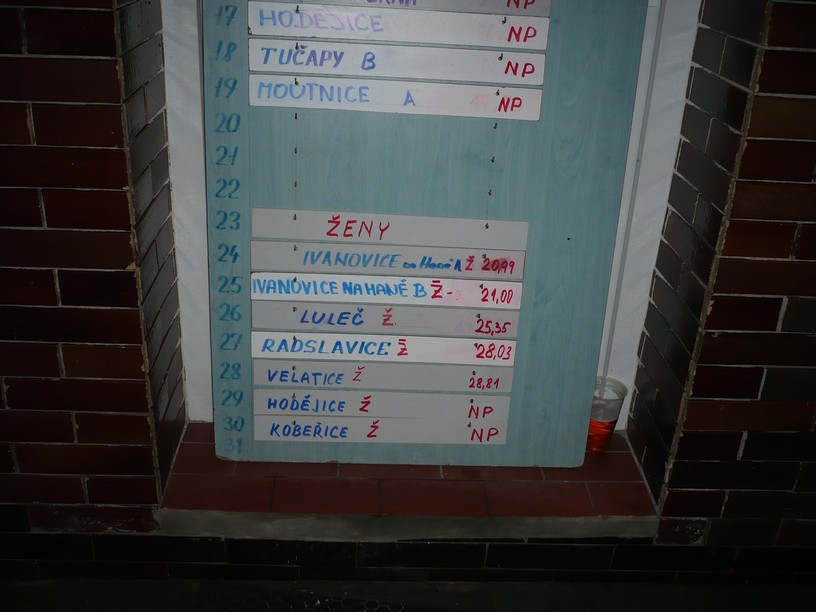 NP
17 HODĚJICE NP
18 TUČAPY B NP
19 MOUTNICE A NP
20
21
22
23 ŽENY
24 IVANOVICE na Hané A Ž 20,99
25 IVANOVICE NA HANÉ B Ž - 21,00
26 LULEČ Ž. 25,35
27 RADSLAVICE Ž 28,03
28 VELATICE Ž 28,81
29 HODĚJICE Ž NP
30 KOBEŘICE Ž NP
31